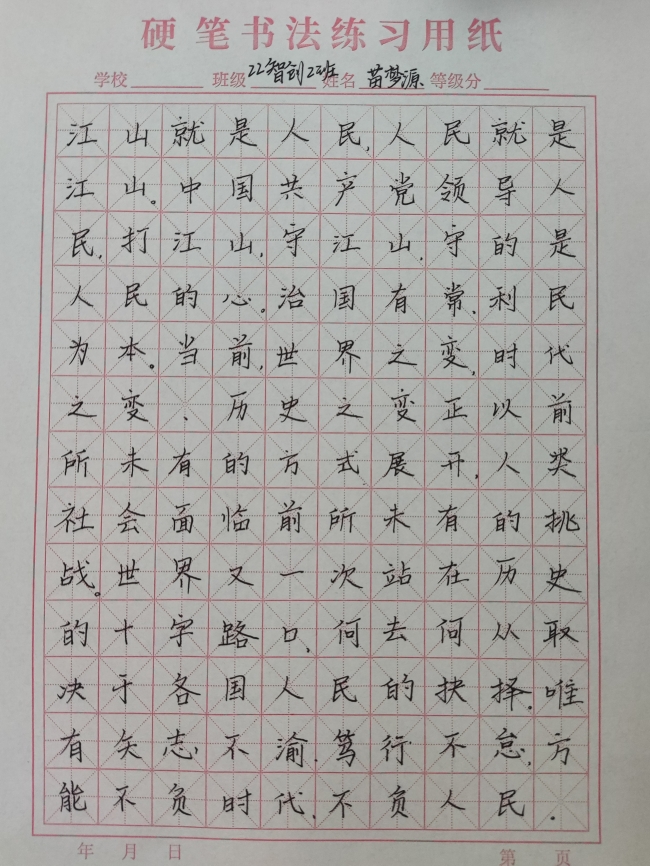 硬笔书法练习用纸
学校 班级 22智创2班 姓名 苗梦源 等级分
江山就是人民,人民就是
江山。中国共产党领导人
民,打江山,守江山,守的是
人民的心。治国有常,利民
为本。当前,世界之变,时代
之变、历史之变正以前
所未有的方式展开,人类
社会面临前所未有的挑
战。世界又一次站在历史
的十字路口,何去何从取
决于各国人民的抉择。唯
有矢志不渝、笃行不怠,方
能不负时代、不负人民.
年 月 日 第 页